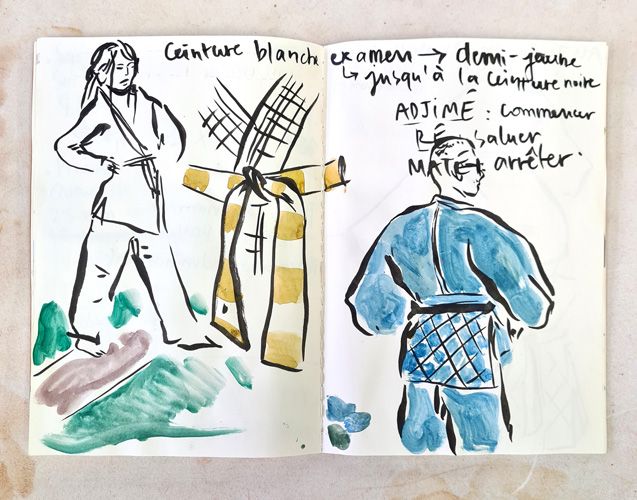 Ceinture blanche
examen → demi-jaune
↳ jusqu'à la ceinture noire
ADJIMÉ : commencer
RÉ : saluer
MATÉ : arrêter.